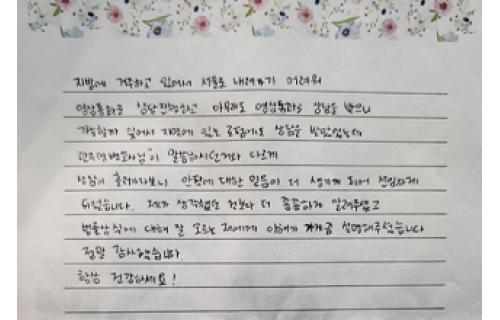 지방에 거주하고 있어서 서울로 내려가기 어려워
영상통화로 상담진행하고 아무래도 영상통화로 상담을 받으니
가능할까 싶어서 지역에 있는 로펌에도 상담을 받았었는데
변호사님이 말씀하시는거와 다르게
상황이 흘러가다보니 안팍에 대한 믿음이 더 생기게 되어 선임하게
되었습니다. 제가 생각했던 것보다 더 꼼꼼하게 알려주셨고
법률상식에 대해 잘 모르는 저에게 이해가 가게끔 설명해주셨습니다
정말 감사했습니다
항상 건강하세요!